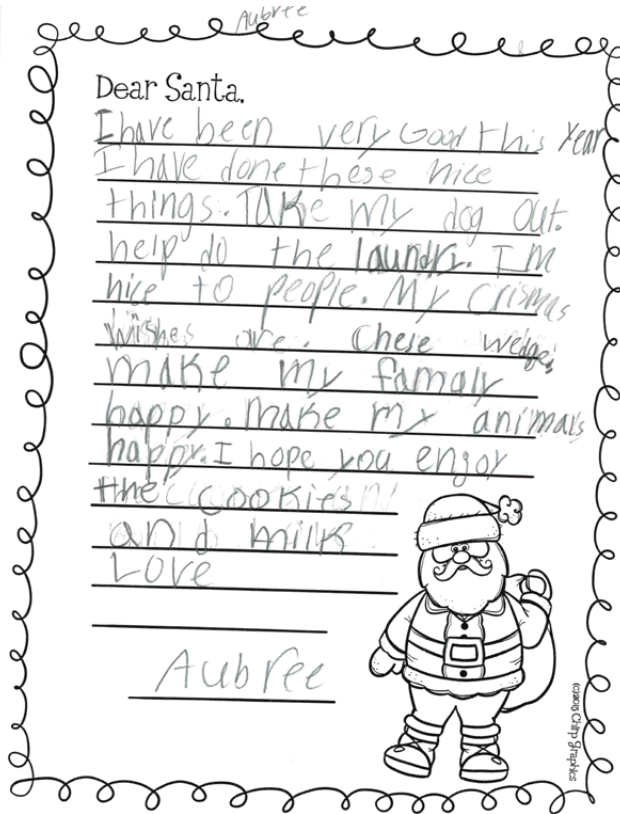 Aubree
Dear Santa,
I have been very Good this year
I have done these nice
things. Take my dog out.
help do the laundry. I M
nice to people. My Crismas
wishes are. Chese wedge,
make my famaly
happy. make my animals
happy. I hope you enjoy
the cookies
and milk
Love
Aubree
(c)2015 Chirp Graphics